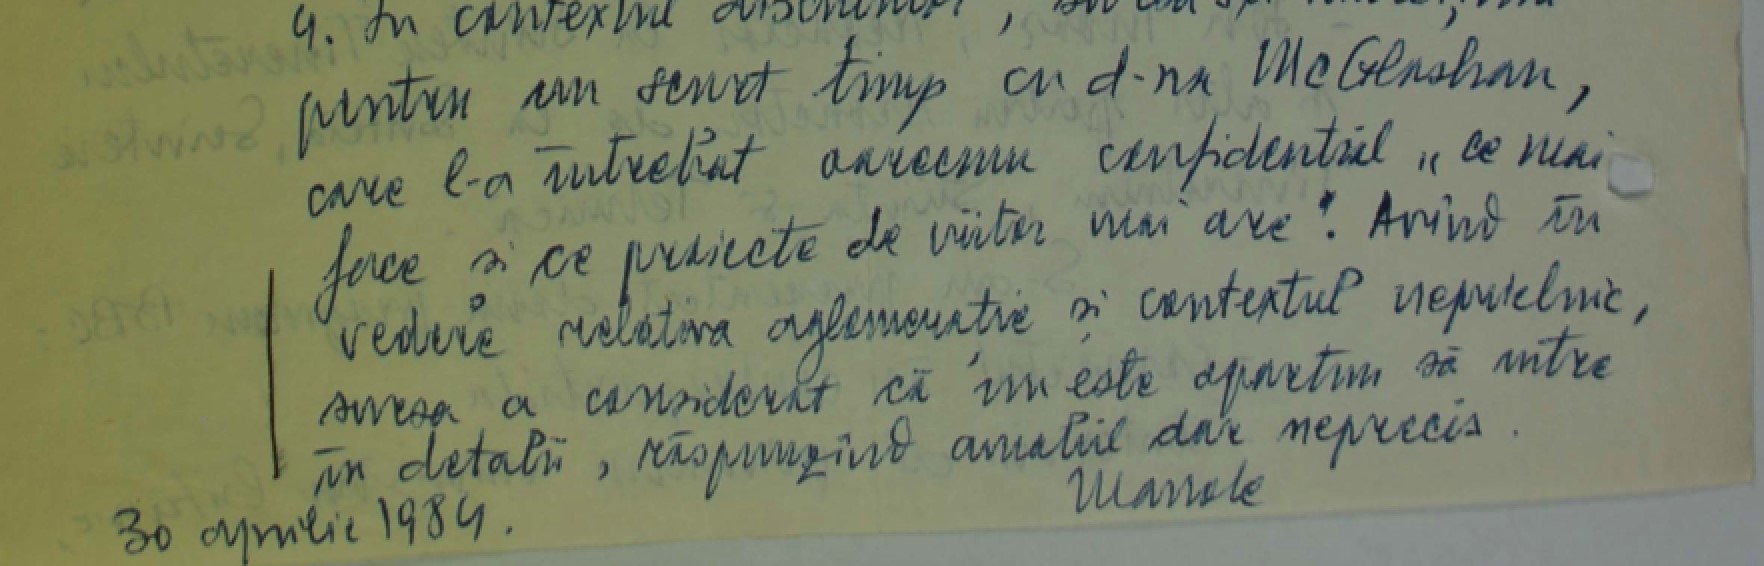 4. În contextul discuțiilor,
pentru un scurt timp cu d-na McGlashan,
care l-a întrebat oarecum confidențial „ce mai
face și ce proiecte de viitor mai are". Avînd în
vedere relativa aglomerație și contextul neprielnic,
sursa a considerat că nu este oportun să intre
în detalii, răspunzînd amabil dar neprecis.
Manole
30 aprilie 1984.